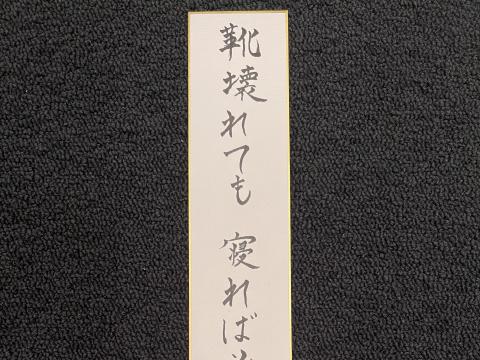 靴壊れても 寝れば